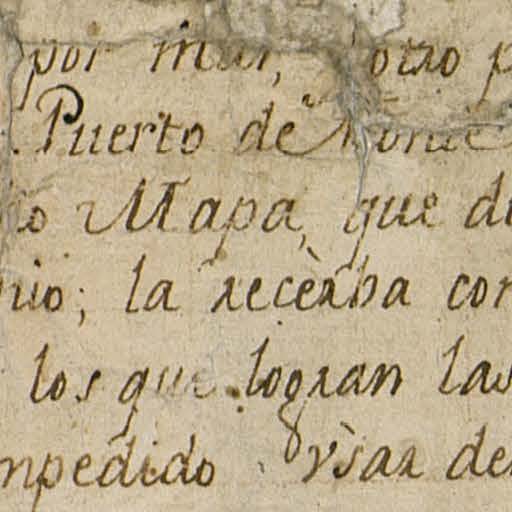 por mar, otro p
Puerto de Monte
Mapa, que di
nio; la recèrba con
los que logran las
mpedido ysar de